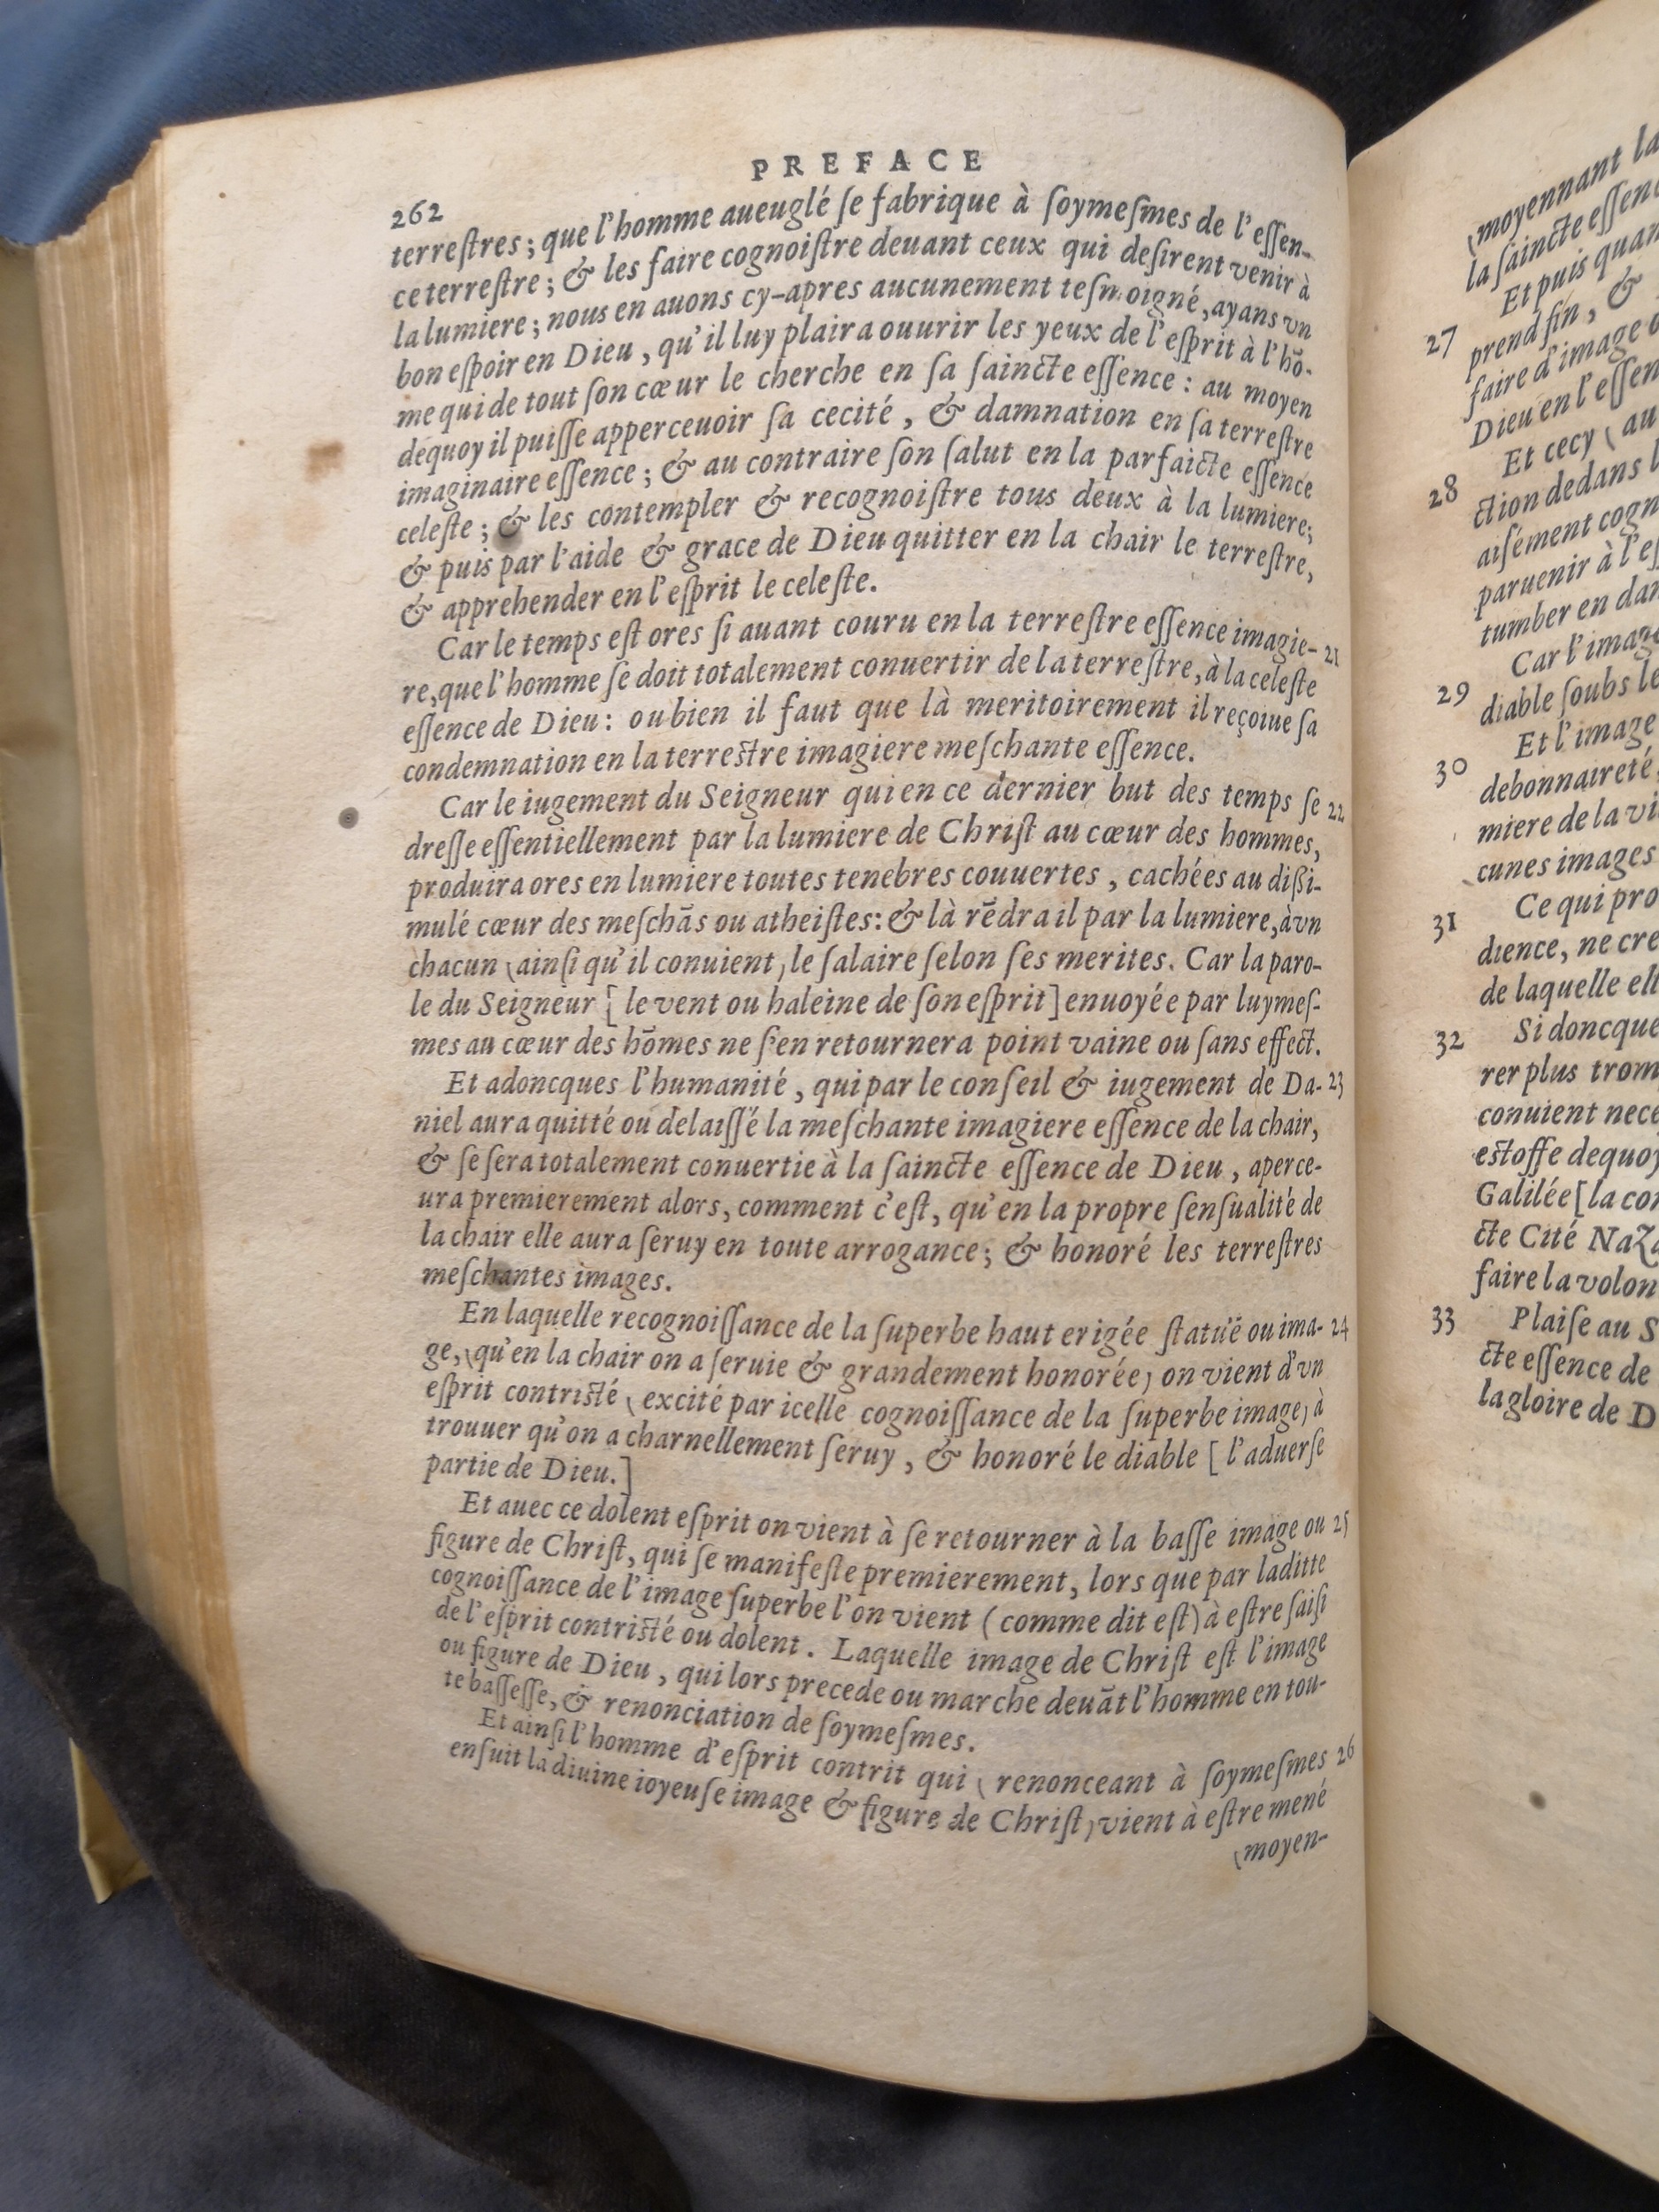 PREFACE
262
terreſtres; que l'homme aueuglé ſe fabrique à ſoymeſmes de l'eſſen-
ce terreſtre; & les faire cognoiſtre deuant ceux qui deſirent venir à
la lumiere; nous en auons cy-apres aucunement teſmoigné, ayans vn
bon eſpoir en Dieu, qu'il luy plaira ouurir les yeux de l'eſprit à l'hō-
me qui de tout ſon cœur le cherche en ſa ſaincte eſſence: au moyen
dequoy il puiſſe apperceuoir ſa cecité, & damnation en ſa terreſtre
imaginaire eſſence; & au contraire ſon ſalut en la parfaicte eſſence
celeſte; & les contempler & recognoiſtre tous deux à la lumiere;
& puis par l'aide & grace de Dieu quitter en la chair le terreſtre,
& apprehender en l'eſprit le celeſte.
Car le temps eſt ores ſi auant couru en la terreſtre eſſence imagie- 21
re, que l'homme ſe doit totalement conuertir de la terreſtre, à la celeſte
eſſence de Dieu: ou bien il faut que là meritoirement il reçoiue ſa
condemnation en la terreſtre imagiere meſchante eſſence.
Car le iugement du Seigneur qui en ce dernier but des temps ſe 22
dreſſe eſſentiellement par la lumiere de Chriſt au cœur des hommes,
produira ores en lumiere toutes tenebres couuertes, cachées au dißi-
mulé cœur des meſchãs ou atheiſtes: & là rẽdra il par la lumiere, à vn
chacun (ainſi qu'il conuient) le ſalaire ſelon ſes merites. Car la paro-
le du Seigneur [le vent ou haleine de ſon eſprit] enuoyée par luymeſ-
mes au cœur des hōmes ne ſ'en retournera point vaine ou ſans effect.
Et adoncques l'humanité, qui par le conſeil & iugement de Da- 23
niel aura quitté ou delaiſſé la meſchante imagiere eſſence de la chair,
& ſe ſera totalement conuertie à la ſaincte eſſence de Dieu, aperce-
ura premierement alors, comment c'eſt, qu'en la propre ſenſualité de
la chair elle aura ſeruy en toute arrogance; & honoré les terreſtres
meſchantes images.
En laquelle recognoiſſance de la ſuperbe haut erigée ſtatuë ou ima- 24
ge, (qu'en la chair on a ſeruie & grandement honorée) on vient d'vn
eſprit contriſté (excité par icelle cognoiſſance de la ſuperbe image) à
trouuer qu'on a charnellement ſeruy, & honoré le diable [l'aduerſe
partie de Dieu.]
Et auec ce dolent eſprit on vient à ſe retourner à la baſſe image ou 25
figure de Chriſt, qui ſe manifeſte premierement, lors que par laditte
cognoiſſance de l'image ſuperbe l'on vient (comme dit eſt) à eſtre ſaiſi
de l'eſprit contriſté ou dolent. Laquelle image de Chriſt eſt l'image
ou figure de Dieu, qui lors precede ou marche deuãt l'homme en tou-
te baſſeſſe, & renonciation de ſoymeſmes.
Et ainſi l'homme d'eſprit contrit qui (renonceant à ſoymeſmes 26
enſuit la diuine ioyeuſe image & figure de Chriſt) vient à eſtre mené
(moyen-
(moyennant la
la ſaincte eſſen
27 Et puis quan
prend fin, &
faire d'image
Dieu en l'eſſen
28 Et cecy (au
ction dedans
aiſément cogn
paruenir à l'eſ
tumber en dan
29 Car l'imag
diable ſoubs le
30 Et l'image
debonnaireté,
miere de la vi
cunes images
31 Ce qui pro
dience, ne cre
de laquelle ell
32 Si doncque
rer plus trom
conuient nece
eſtoffe dequoy
Galilée [la con
cte Cité Naza
faire la volon
33 Plaiſe au S
cte eſſence de
la gloire de D